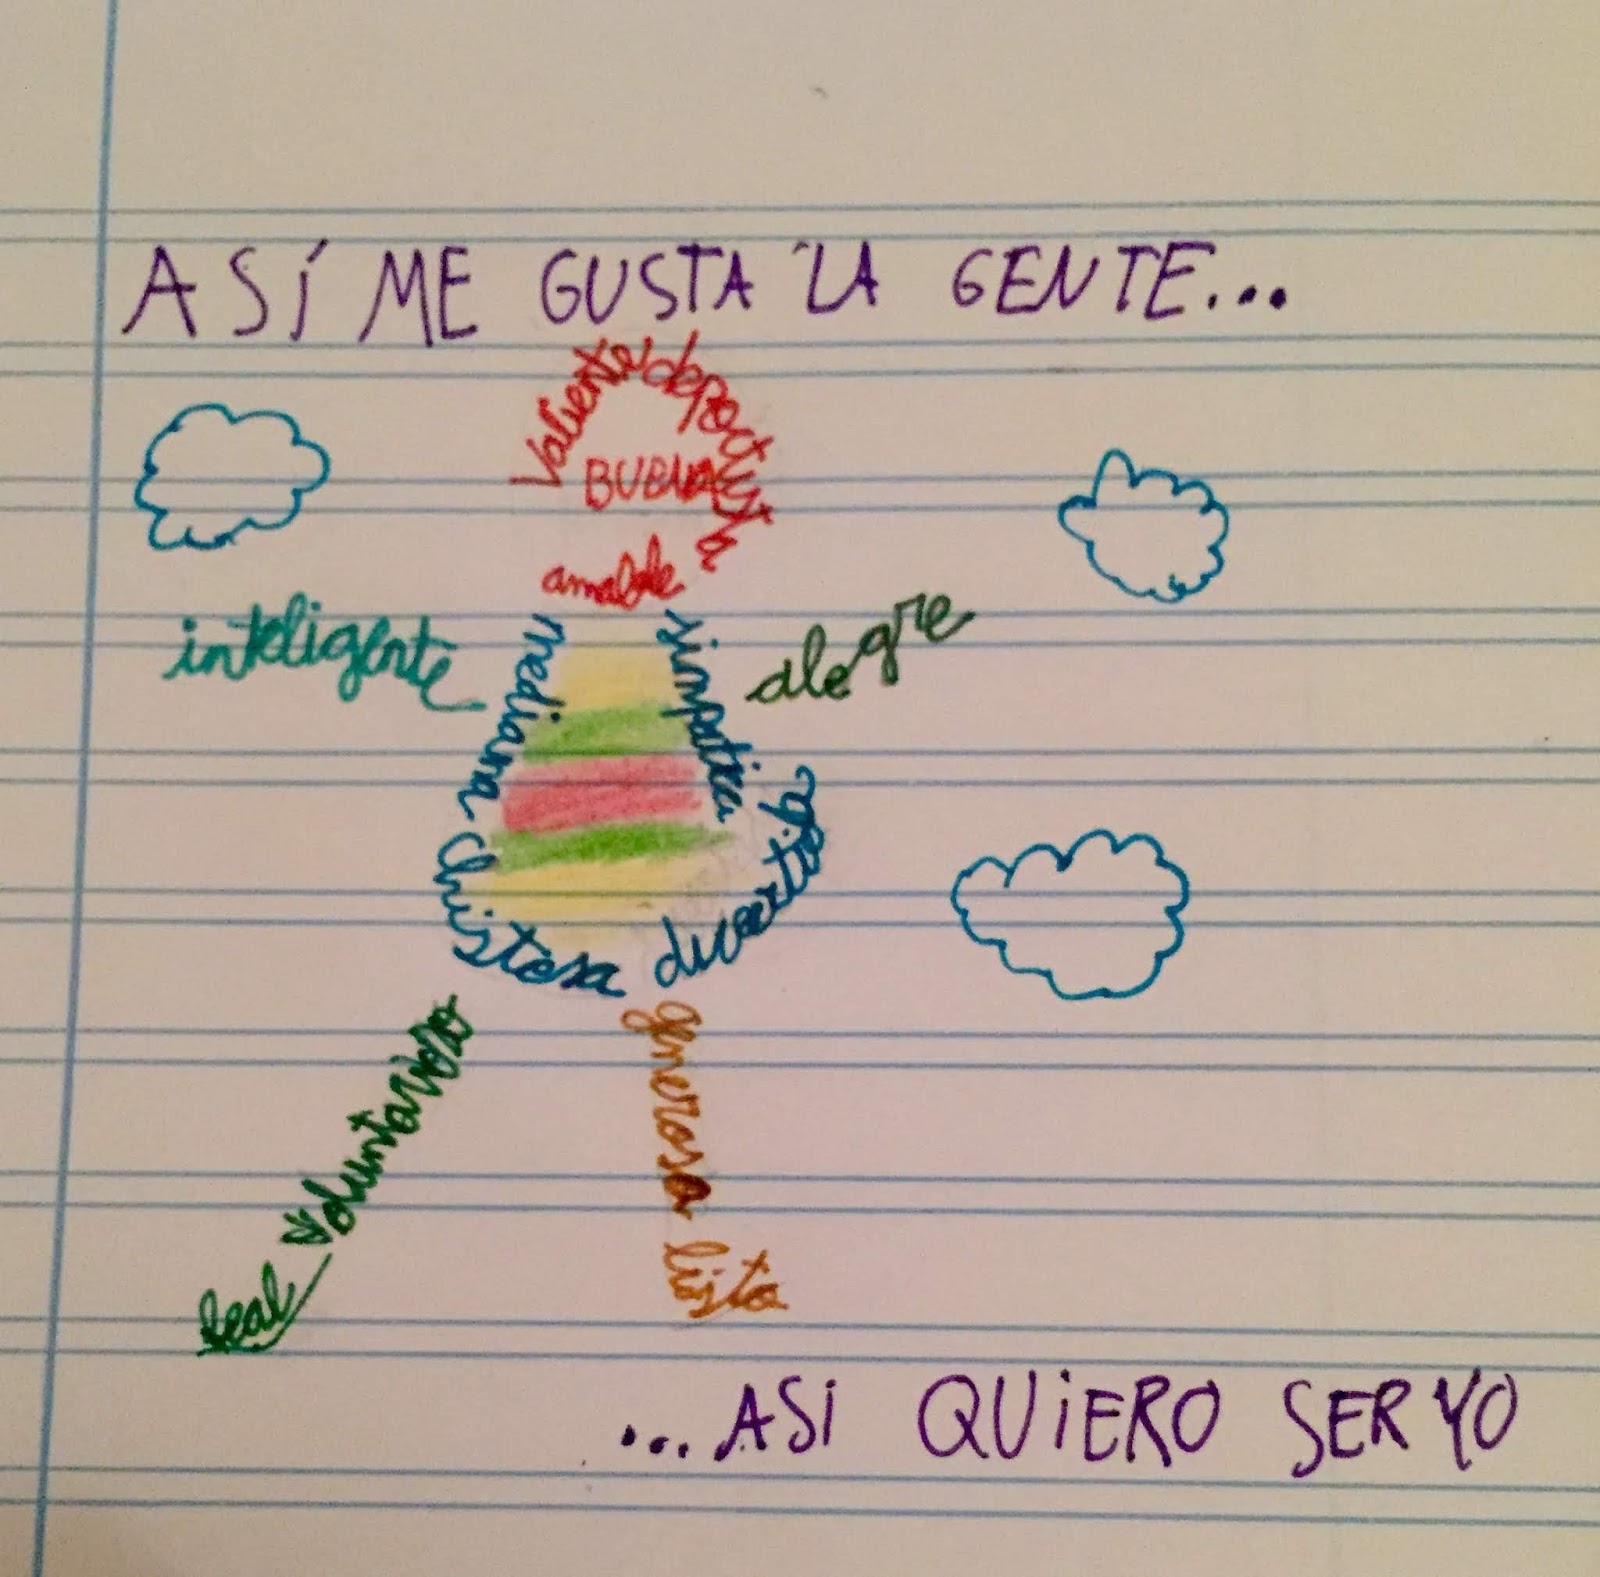 ASÍ ME GUSTA LA GENTE...
Valiente deportista
BUENA
amable
inteligente
alegre
mediana
simpatica
chistosa
divertida
voluntariosa
generosa
leal
lista
...ASI QUIERO SER YO